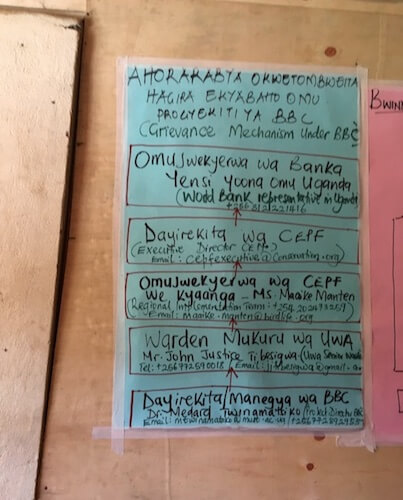 AHORAKABYA OKWETOMBWEITA
HAGIRA EKYABAHO OMU
PROGYEKITI YA BBC
(Grievance Mechanism Under BBC)
Omujwekyerwa wa Banka
Yensi Yoona Omu Uganda
(World Bank representative in Uganda
Dayirekita wa CEPF
(Executive Director CEPF)
Email: cepfexecutive@conservation.org)
Omujwekyerwa wa CEPF
We Kyaanga - Ms. Maaike Manten
(Regional Implementation Team:
Email: maaike.manten@birdlife.org
Warden Mukuru wa UWA
Mr. John Justice Tibesigwa (Uwa Senior
Tel: +256772590018 Email:
Dayirekita/Manegya wa BBC
Dr. Medard Twinamatsiko/Project Director BBC
BWIN